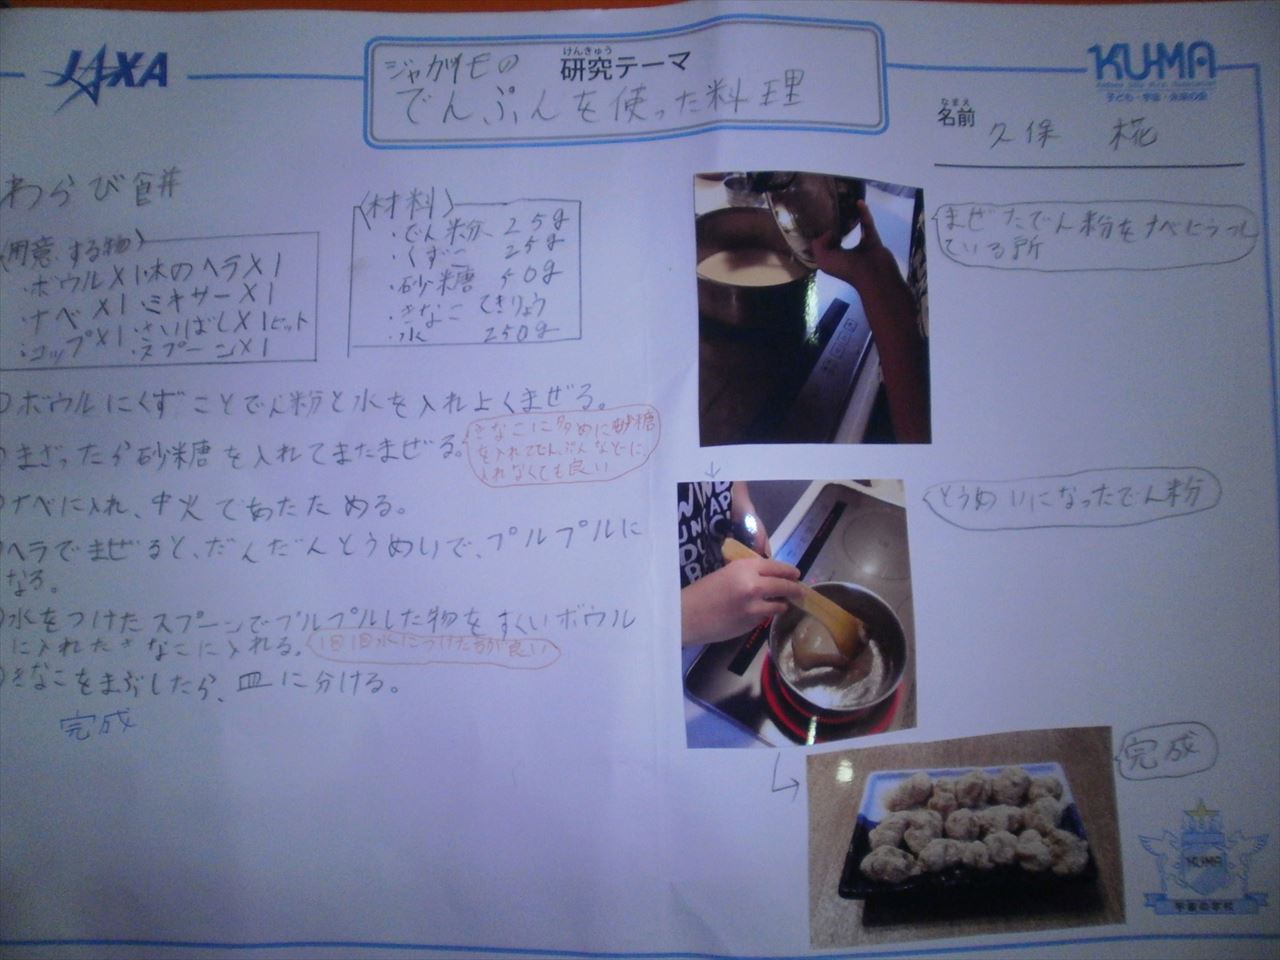 JAXA
けんきゅう
研究テーマ
ジャガイモの
でんぷんを使った料理
KU-MA
子ども・宇宙・未来の会
なまえ
名前
久保 椛
わらび餅
〈用意する物〉
・ボウル×1・木のヘラ×1
・ナベ×1・ミキサー×1
・コップ×1・さいばし×1セット
・スプーン×1
〈材料〉
・でん粉 25g
・くずこ 25g
・砂糖 50g
・きなこ てきりょう
・水 250g
ボウルにくずことでん粉と水を入れよくまぜる。
まざったら砂糖を入れてまたまぜる。
きなこに多めに砂糖
を入れてでんぷんなどに、
入れなくても良い
ナベに入れ、中火であたためる。
ヘラでまぜると、だんだんとうめいで、プルプルに
なる。
水をつけたスプーンでプルプルした物をすくいボウル
に入れたきなこに入れる。
1回1回水につけた方が良い
きなこをまぶしたら、皿に分ける。
完成
まぜたでん粉をナベにうつし
ている所
とうめいになったでん粉
完成
KU-MA
宇宙の学校